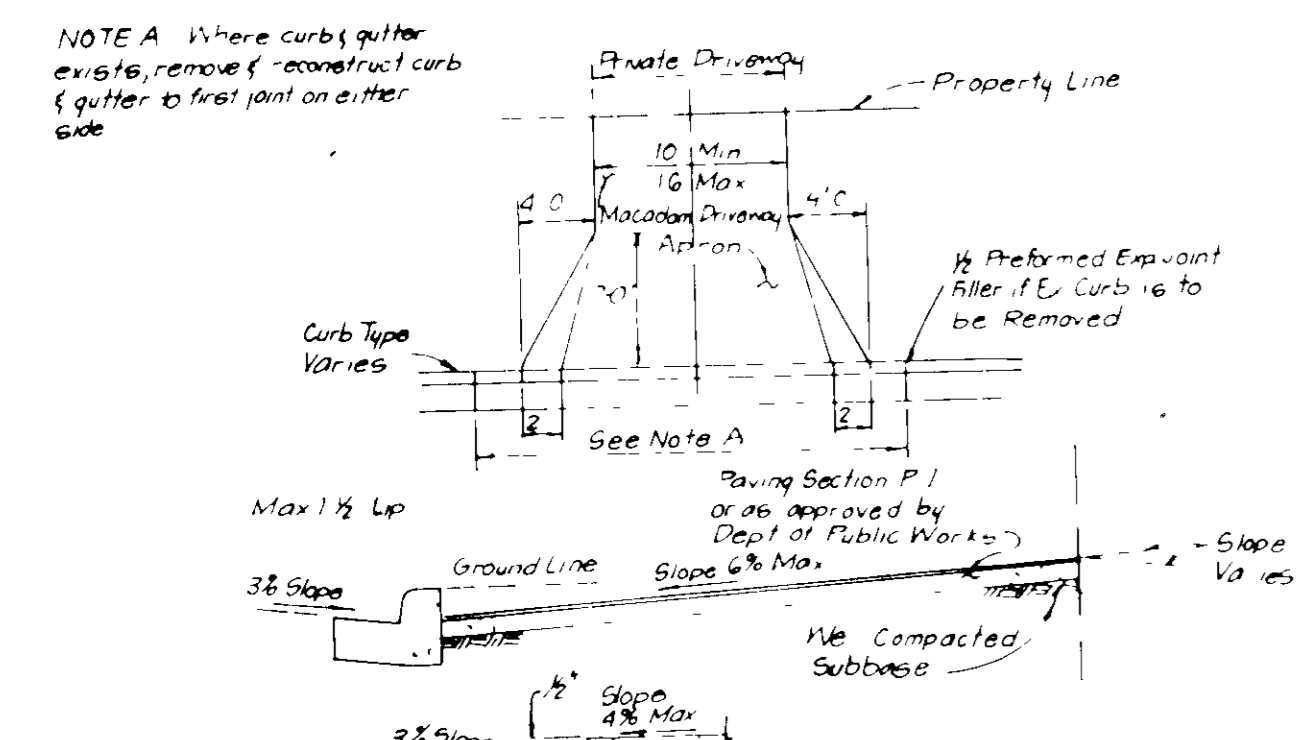 NOTE A Where curb & gutter
exists, remove & reconstruct curb
& gutter to first joint on either
side
Private Driveway
Property Line
10 Min
16 Max
4 0
4'0
Macadam Driveway
Apron
½ Preformed Exp Joint
Filler if Ex Curb is to
be Removed
Curb Type
Varies
2
2
See Note A
Paving Section P 1
or as approved by
Dept of Public Works
Max 1 ½ Lip
Ground Line
Slope 6% Max
Slope
3% Slope
We Compacted
Subbase
½"
Slope
4% Max
3% Slope